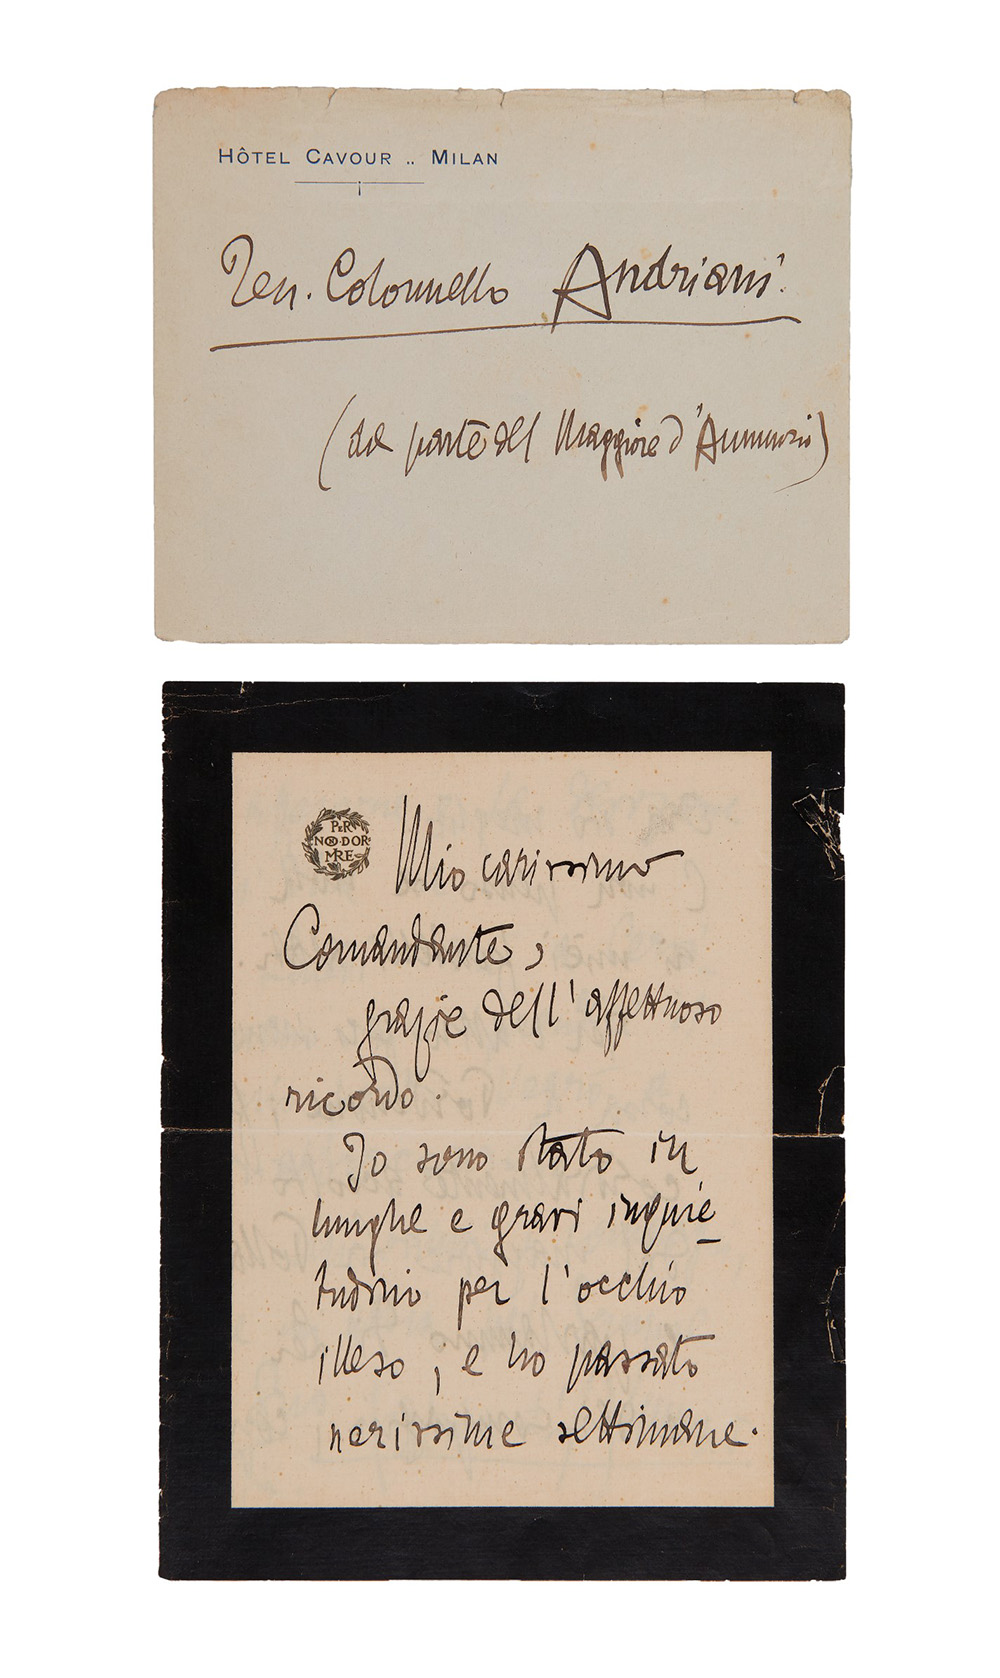 HÔTEL CAVOUR .. MILAN
Ten. Colonnello Andriani.
(da parte del Maggiore d'Annunzio)
PER
NON DOR
MIRE
Mio carissimo
Comandante,
grazie dell'affettuoso
ricordo.
Io sono stato in
lunghe e gravi inquie
tudini per l'occhio
illeso, e ho passato
nerissime settimane.